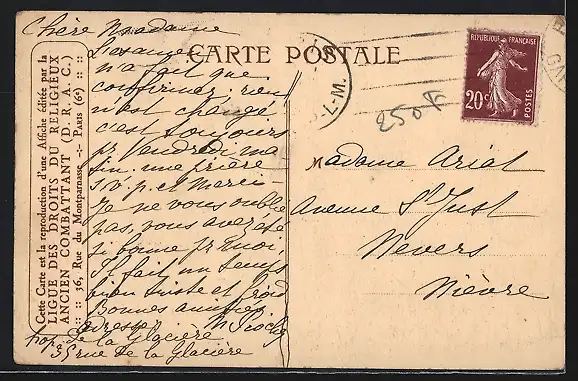 CARTE POSTALE
Chère Madame
L'examen
n'a fait que
confirmer, rien
n'est changé
c'est toujours
pr Vendredi ma
fin. une prière
s.v.p. et merci
Je ne vous oublie
pas, vous avez été
si bonne pr moi.
Il fait un temps
bien triste et froid
Bonnes amitiés
adresse
hop. de la Glacière
35 rue de la Glacière
Cette Carte est la reproduction d'une Affiche éditée par la
LIGUE DES DROITS DU RELIGIEUX
ANCIEN COMBATTANT (D. R. A. C.)
:: :: 36, Rue du Montparnasse -:- PARIS (6e) :: ::
REPUBLIQUE FRANÇAISE
20c
POSTES
250 F
Madame Ariat
Avenue St Just
Nevers
Nièvre